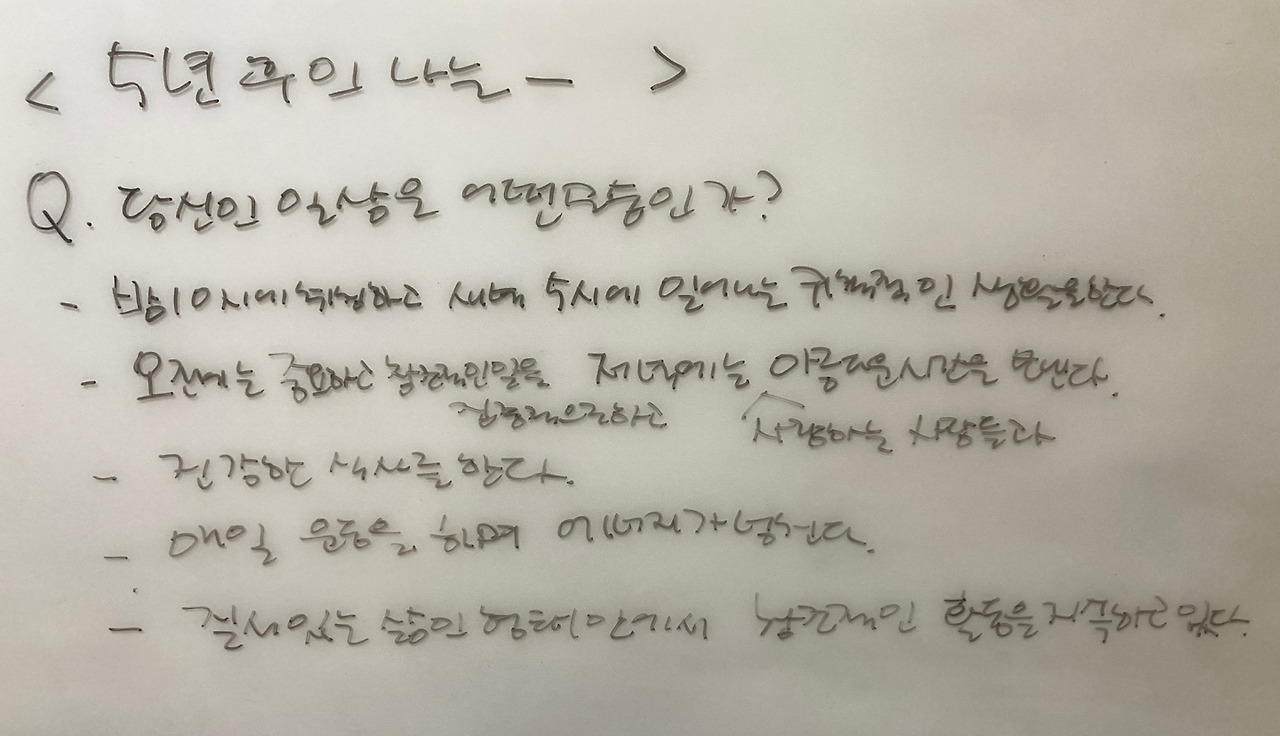 < 5년 후의 나는 - >
Q. 당신의 일상은 어떤모습인가?
- 밤10시에 취침하고 새벽 5시에 일어나는 규칙적인 생활을한다.
- 오전에는 중요하고 창조적인일을 저녁에는 아름다운시간을 보낸다.
집중적으로하고 사랑하는 사람들과
- 건강한 식사를 한다.
- 매일 운동을 하며 에너지가 넘친다.
- 질서있는 삶의 형태안에서 창조적인 활동을 지속하고 있다.